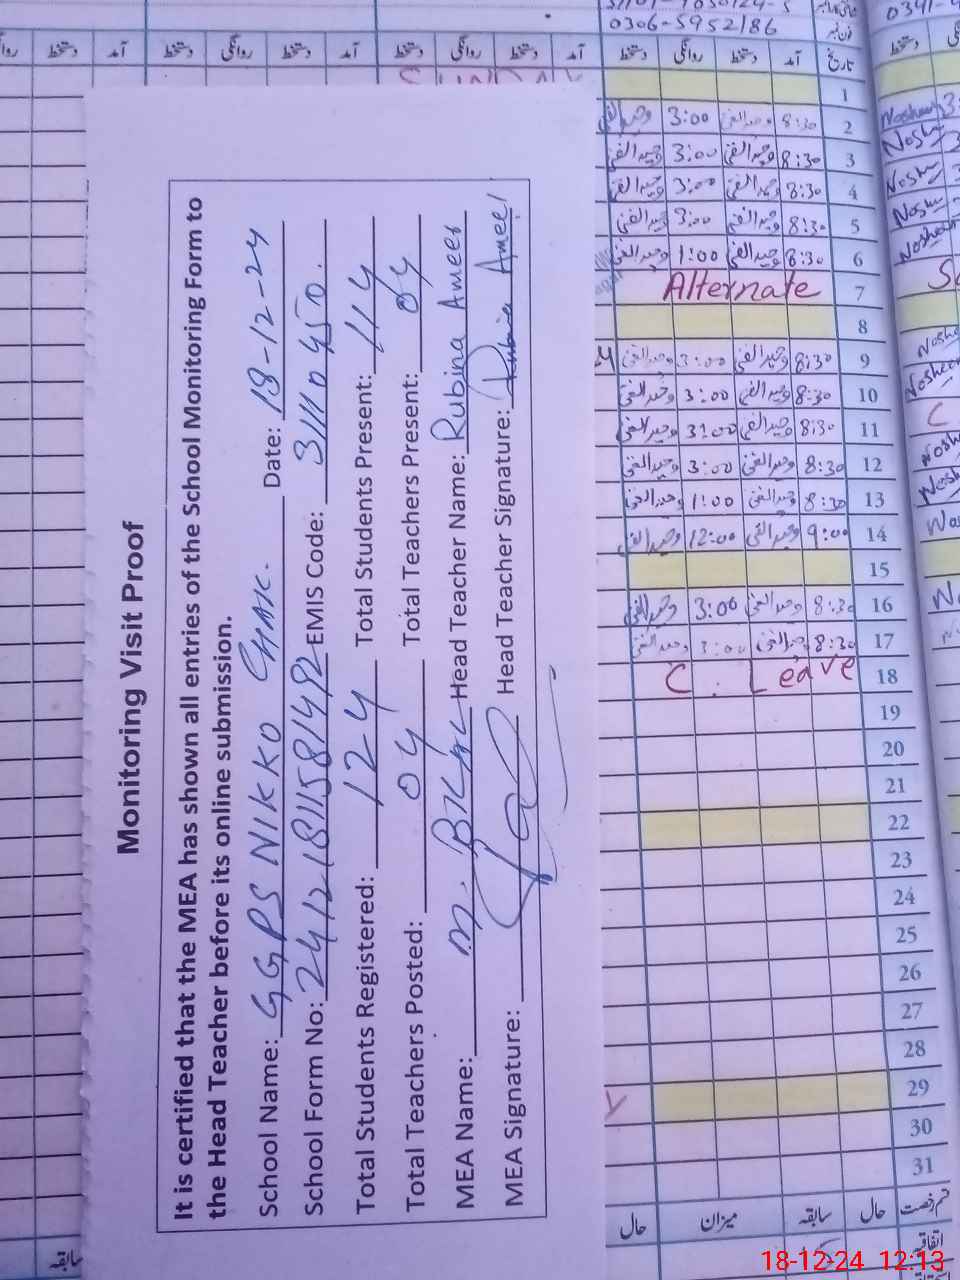 Monitoring Visit Proof
It is certified that the MEA has shown all entries of the School Monitoring Form to
the Head Teacher before its online submission.
School Name: GGPS NIKKO CHAK. Date: 18-12-24
School Form No: EMIS Code: 31110450.
Total Students Registered: 124 Total Students Present: 114
Total Teachers Posted: 04 Total Teachers Present: 04
MEA Name: M. BILAL Head Teacher Name: Rubina Ameer
MEA Signature: Head Teacher Signature: Rubina Ameer
0306-5952186
دستخط روانگی دستخط آمد تاریخ
1
وحیدالغنی 3:00 وحیدالغنی 8:30 2
وحیدالغنی 3:00 وحیدالغنی 8:30 3
وحیدالغنی 3:00 وحیدالغنی 8:30 4
وحیدالغنی 3:00 وحیدالغنی 8:30 5
وحیدالغنی 1:00 وحیدالغنی 8:30 6
Alternate 7
8
وحیدالغنی 3:00 وحیدالغنی 8:30 9
وحیدالغنی 3:00 وحیدالغنی 8:30 10
وحیدالغنی 3:00 وحیدالغنی 8:30 11
وحیدالغنی 3:00 وحیدالغنی 8:30 12
وحیدالغنی 1:00 وحیدالغنی 8:30 13
وحیدالغنی 12:00 وحیدالغنی 9:00 14
15
وحیدالغنی 3:00 وحیدالغنی 8:30 16
وحیدالغنی 3:00 وحیدالغنی 8:30 17
C. Leave 18
19
20
21
22
23
24
25
26
27
28
29
30
31
حال میزان سابقہ حال قسم رخصت
اتفاقیہ
سابقہ
18-12-24 12:13